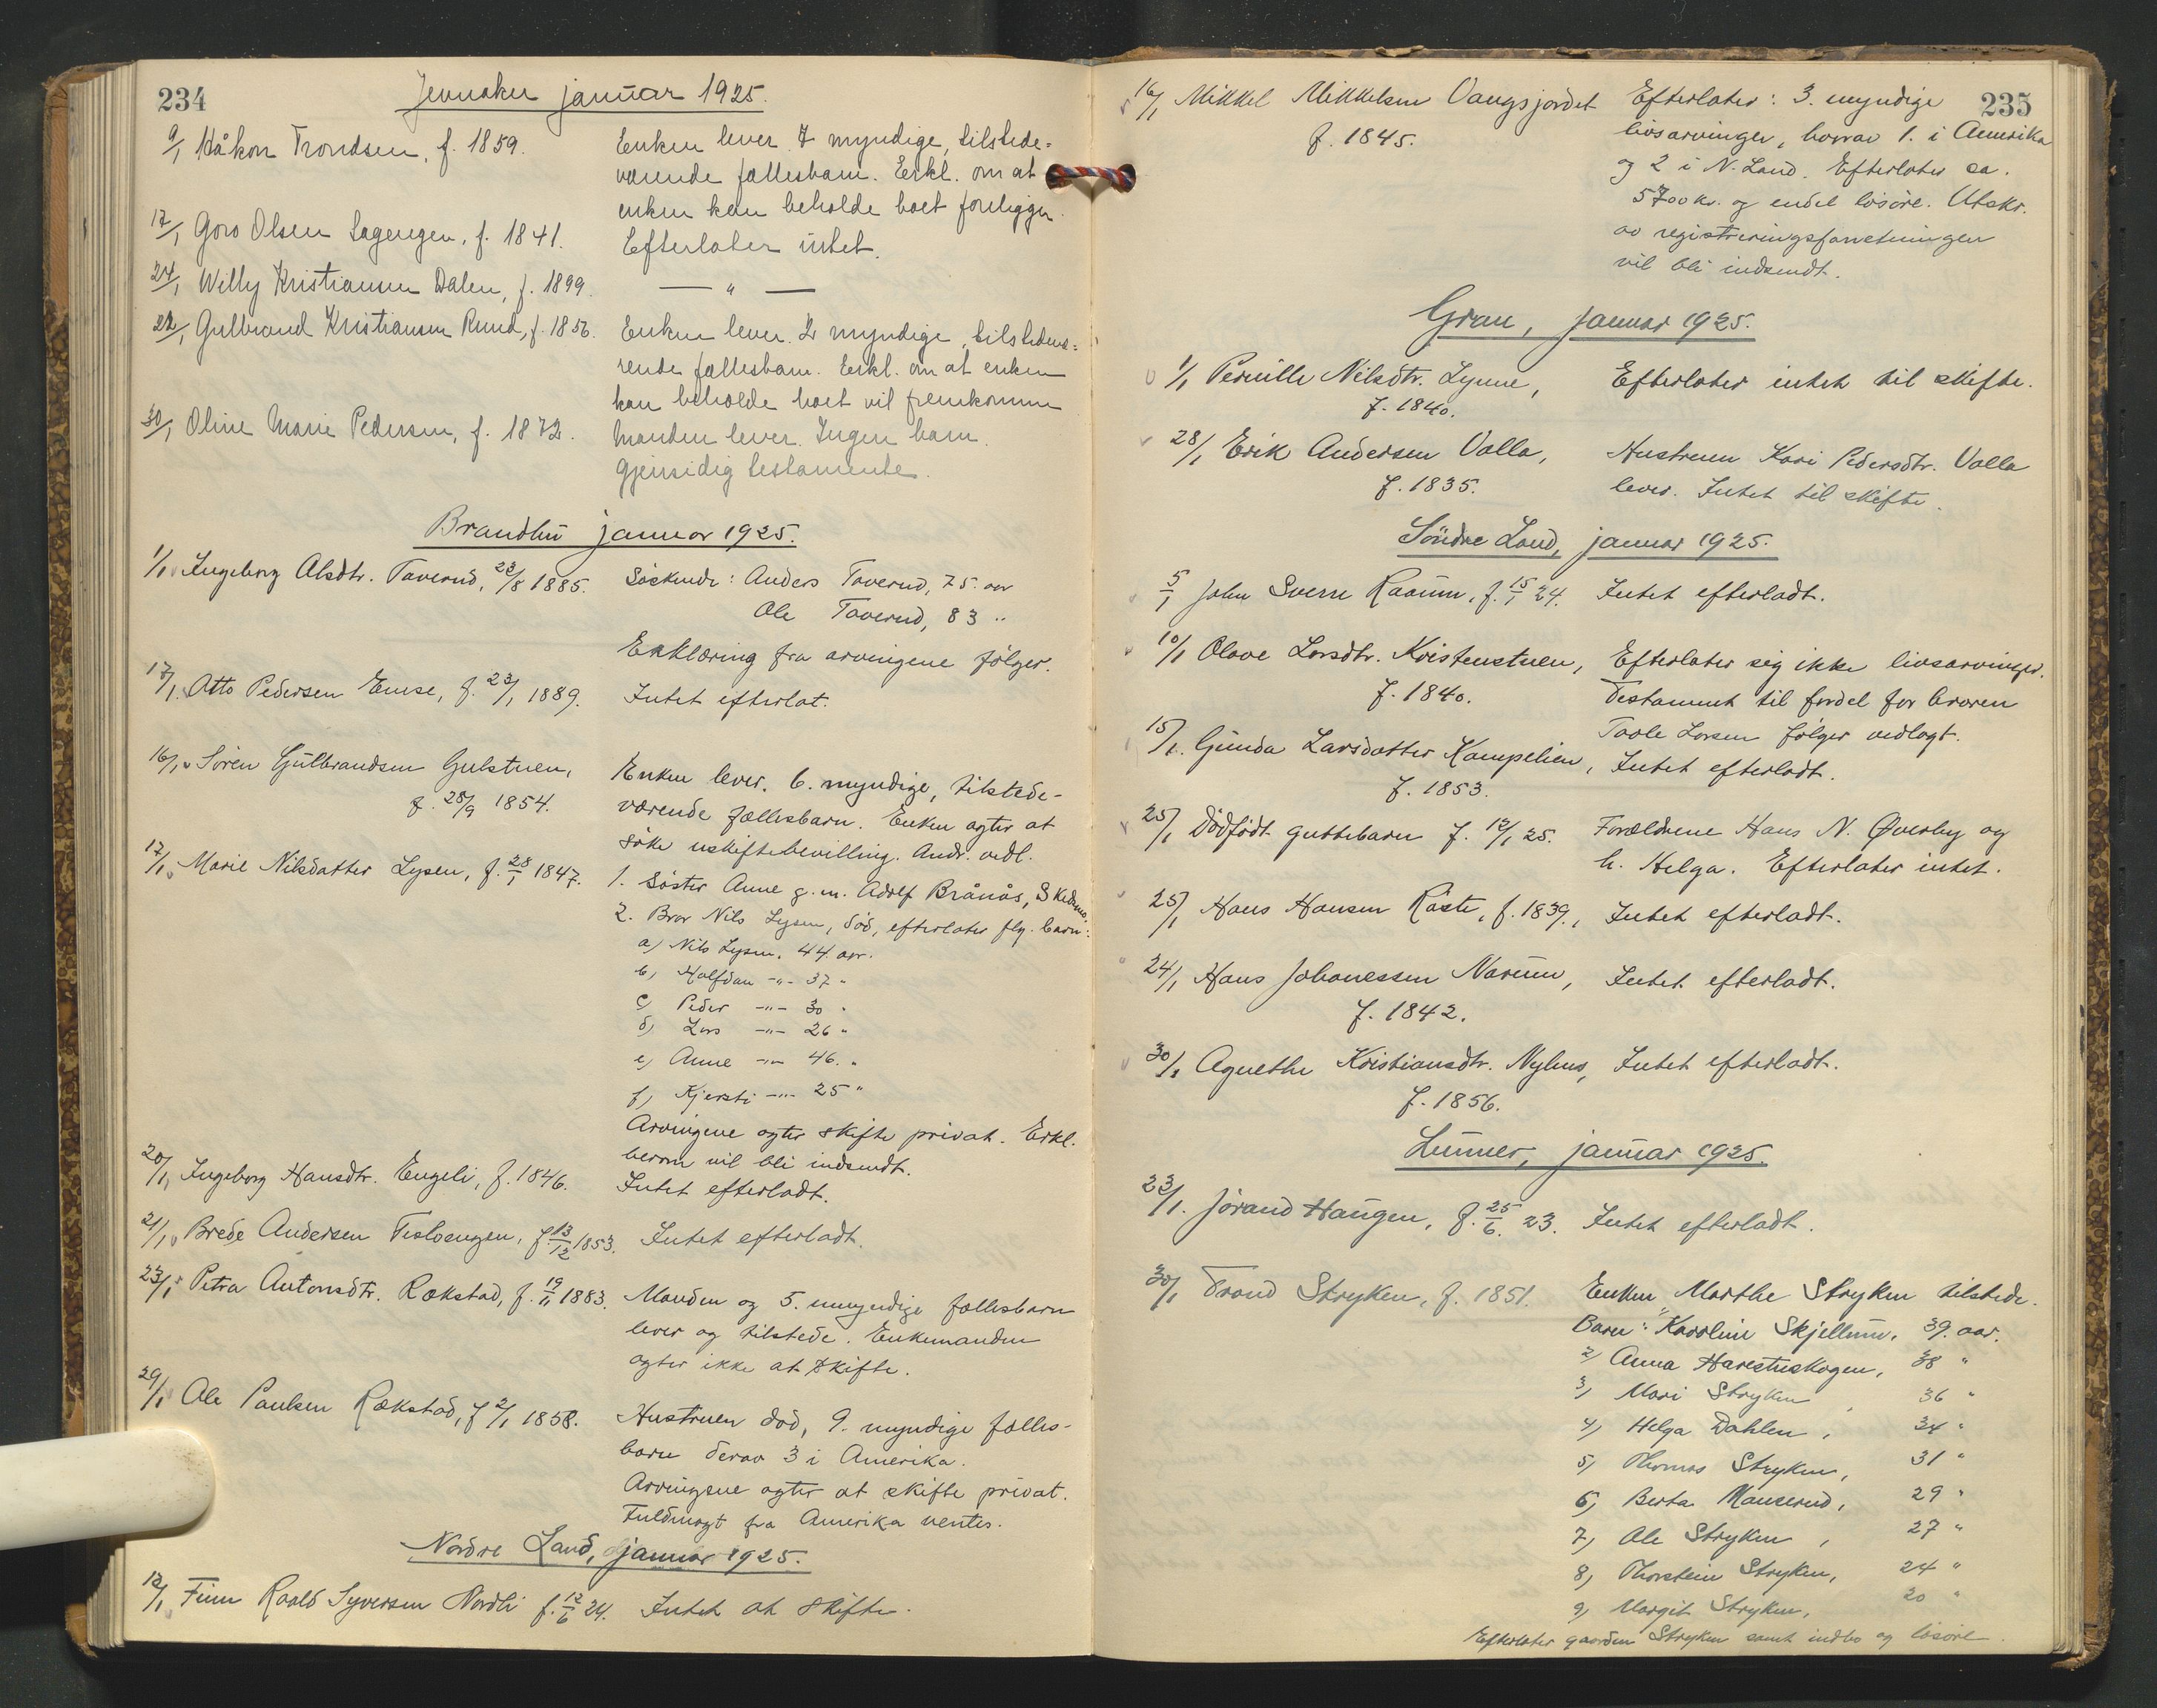 234
Jevnaker januar 1925.
9/1 Håkon Trondsen, f. 1859. Enken lever. 7 myndige, tilstede-
værende fællesbarn. Erkl. om at
enken kan beholde boet foreligger.
17/1 Goro Olsen Lagengen, f. 1841. Efterlater intet.
24/1 Willy Kristiansen Dalen, f. 1899. — " —
22/1 Gulbrand Kristiansen Rund, f. 1856. Enken lever. 2 myndige, tilstedevæ-
rende fællesbarn. Erkl. om at enken
kan beholde boet vil fremkomme
30/1 Oline Marie Pedersen, f. 1872. Manden lever. Ingen barn.
Gjensidig testamente.
Brandbu januar 1925.
1/1 Ingeborg Olsdtr. Taverud, 23/8 1885. Søskende: Anders Taverud, 75. aar
Ole Taverud, 83 "
Erklæring fra arvingene følger.
17/1 Otto Pedersen Emse, f. 23/1 1889. Intet efterlat.
16/1 Søren Gulbrandsen Gulstuen, Enken lever. 6. myndige, tilstede-
f. 28/9 1854. værende fællesbarn. Enken agter at
søke uskiftebevilling. Andr. vedl.
17/1 Marie Nilsdatter Lysen, f. 28/1 1847. 1. Søster Anne g. m. Adolf Brånås, Skedsmo.
2. Bror Nils Lysen, død, efterlater flg. barn:
a) Nils Lysen, 44. aar.
b) Halfdan -"- 37 "
c) Peder -"- 30 "
d) Lars -"- 26 "
e) Anne -"- 46. "
f) Kjersti -"- 25 "
Arvingene agter skifte privat. Erkl.
herom vil bli indsendt.
20/1 Ingeborg Hansdtr. Engeli, f. 1846. Intet efterladt.
21/1 Brede Andersen Tesloengen, f. 13/12 1853. Intet efterladt.
23/1 Petra Antonsdtr. Rækstad, f. 19/11 1883. Manden og 5. umyndige fællesbarn
lever og tilstede. Enkemanden
agter ikke at skifte.
29/1 Ole Paulsen Rækstad, f 2/1 1858. Hustruen død, 9. myndige fælles-
barn derav 3 i Amerika.
Arvingene agter at skifte privat.
Fuldmagt fra Amerika ventes.
Nordre Land, januar 1925.
12/1 Finn Roald Syversen Nordli f. 12/6 24. Intet at skifte.
235
16/1 Mikkel Mikkelsen Vangsjordet Efterlater: 3. myndige
f. 1845. livsarvinger, hvorav 1. i Amerika
og 2 i N. Land. Efterlater ca.
5700 kr. og endel løsøre. Utskr.
av registreringsforretningen
vil bli indsendt.
Gran, januar 1925.
1/1 Pernille Nilsdtr. Lynne, Efterlater intet til skifte.
f. 1840.
28/1 Erik Andersen Valla, Hustruen Kari Pedersdtr. Valla
f. 1835. lever. Intet til skifte.
Søndre Land, januar 1925.
5/1 John Sverre Raaum, f. 15/1 24. Intet efterladt.
10/1 Olave Larsdtr. Kristenstuen, Efterlater sig ikke livsarvinger.
f. 1840. Testament til fordel for broren
Taale Larsen følger vedlagt.
15/1. Gunda Larsdatter Kampelien, Intet efterladt.
f. 1853.
25/1 Dødfødt guttebarn f. 12/1 25. Forældrene Hans N. Øverby og
h. Helga. Efterlater intet.
25/1 Hans Hansen Røste, f. 1839, Intet efterladt.
24/1 Hans Johanessen Narum, Intet efterladt.
f. 1842.
30/1 Agnethe Kristiansdtr. Nyhus, Intet efterladt.
f. 1856.
Lunner, januar 1925.
23/1. Jørand Haugen, f. 25/6. 23. Intet efterladt.
30/1 Trond Stryken, f. 1851. Enken Marthe Stryken tilstede.
Barn: 1) Karoline Skjellum, 39. aar.
2) Anna Harestuskogen, 38 "
3) Mari Stryken, 36 "
4) Helga Dahlen, 34 "
5) Thomas Stryken, 31 "
6) Berta Manserud, 29 "
7) Ole Stryken, 27 "
8) Thorstein Stryken, 24 "
9) Margit Stryken, 20 "
Efterlater gaarden Stryken samt indbo og løsøre.